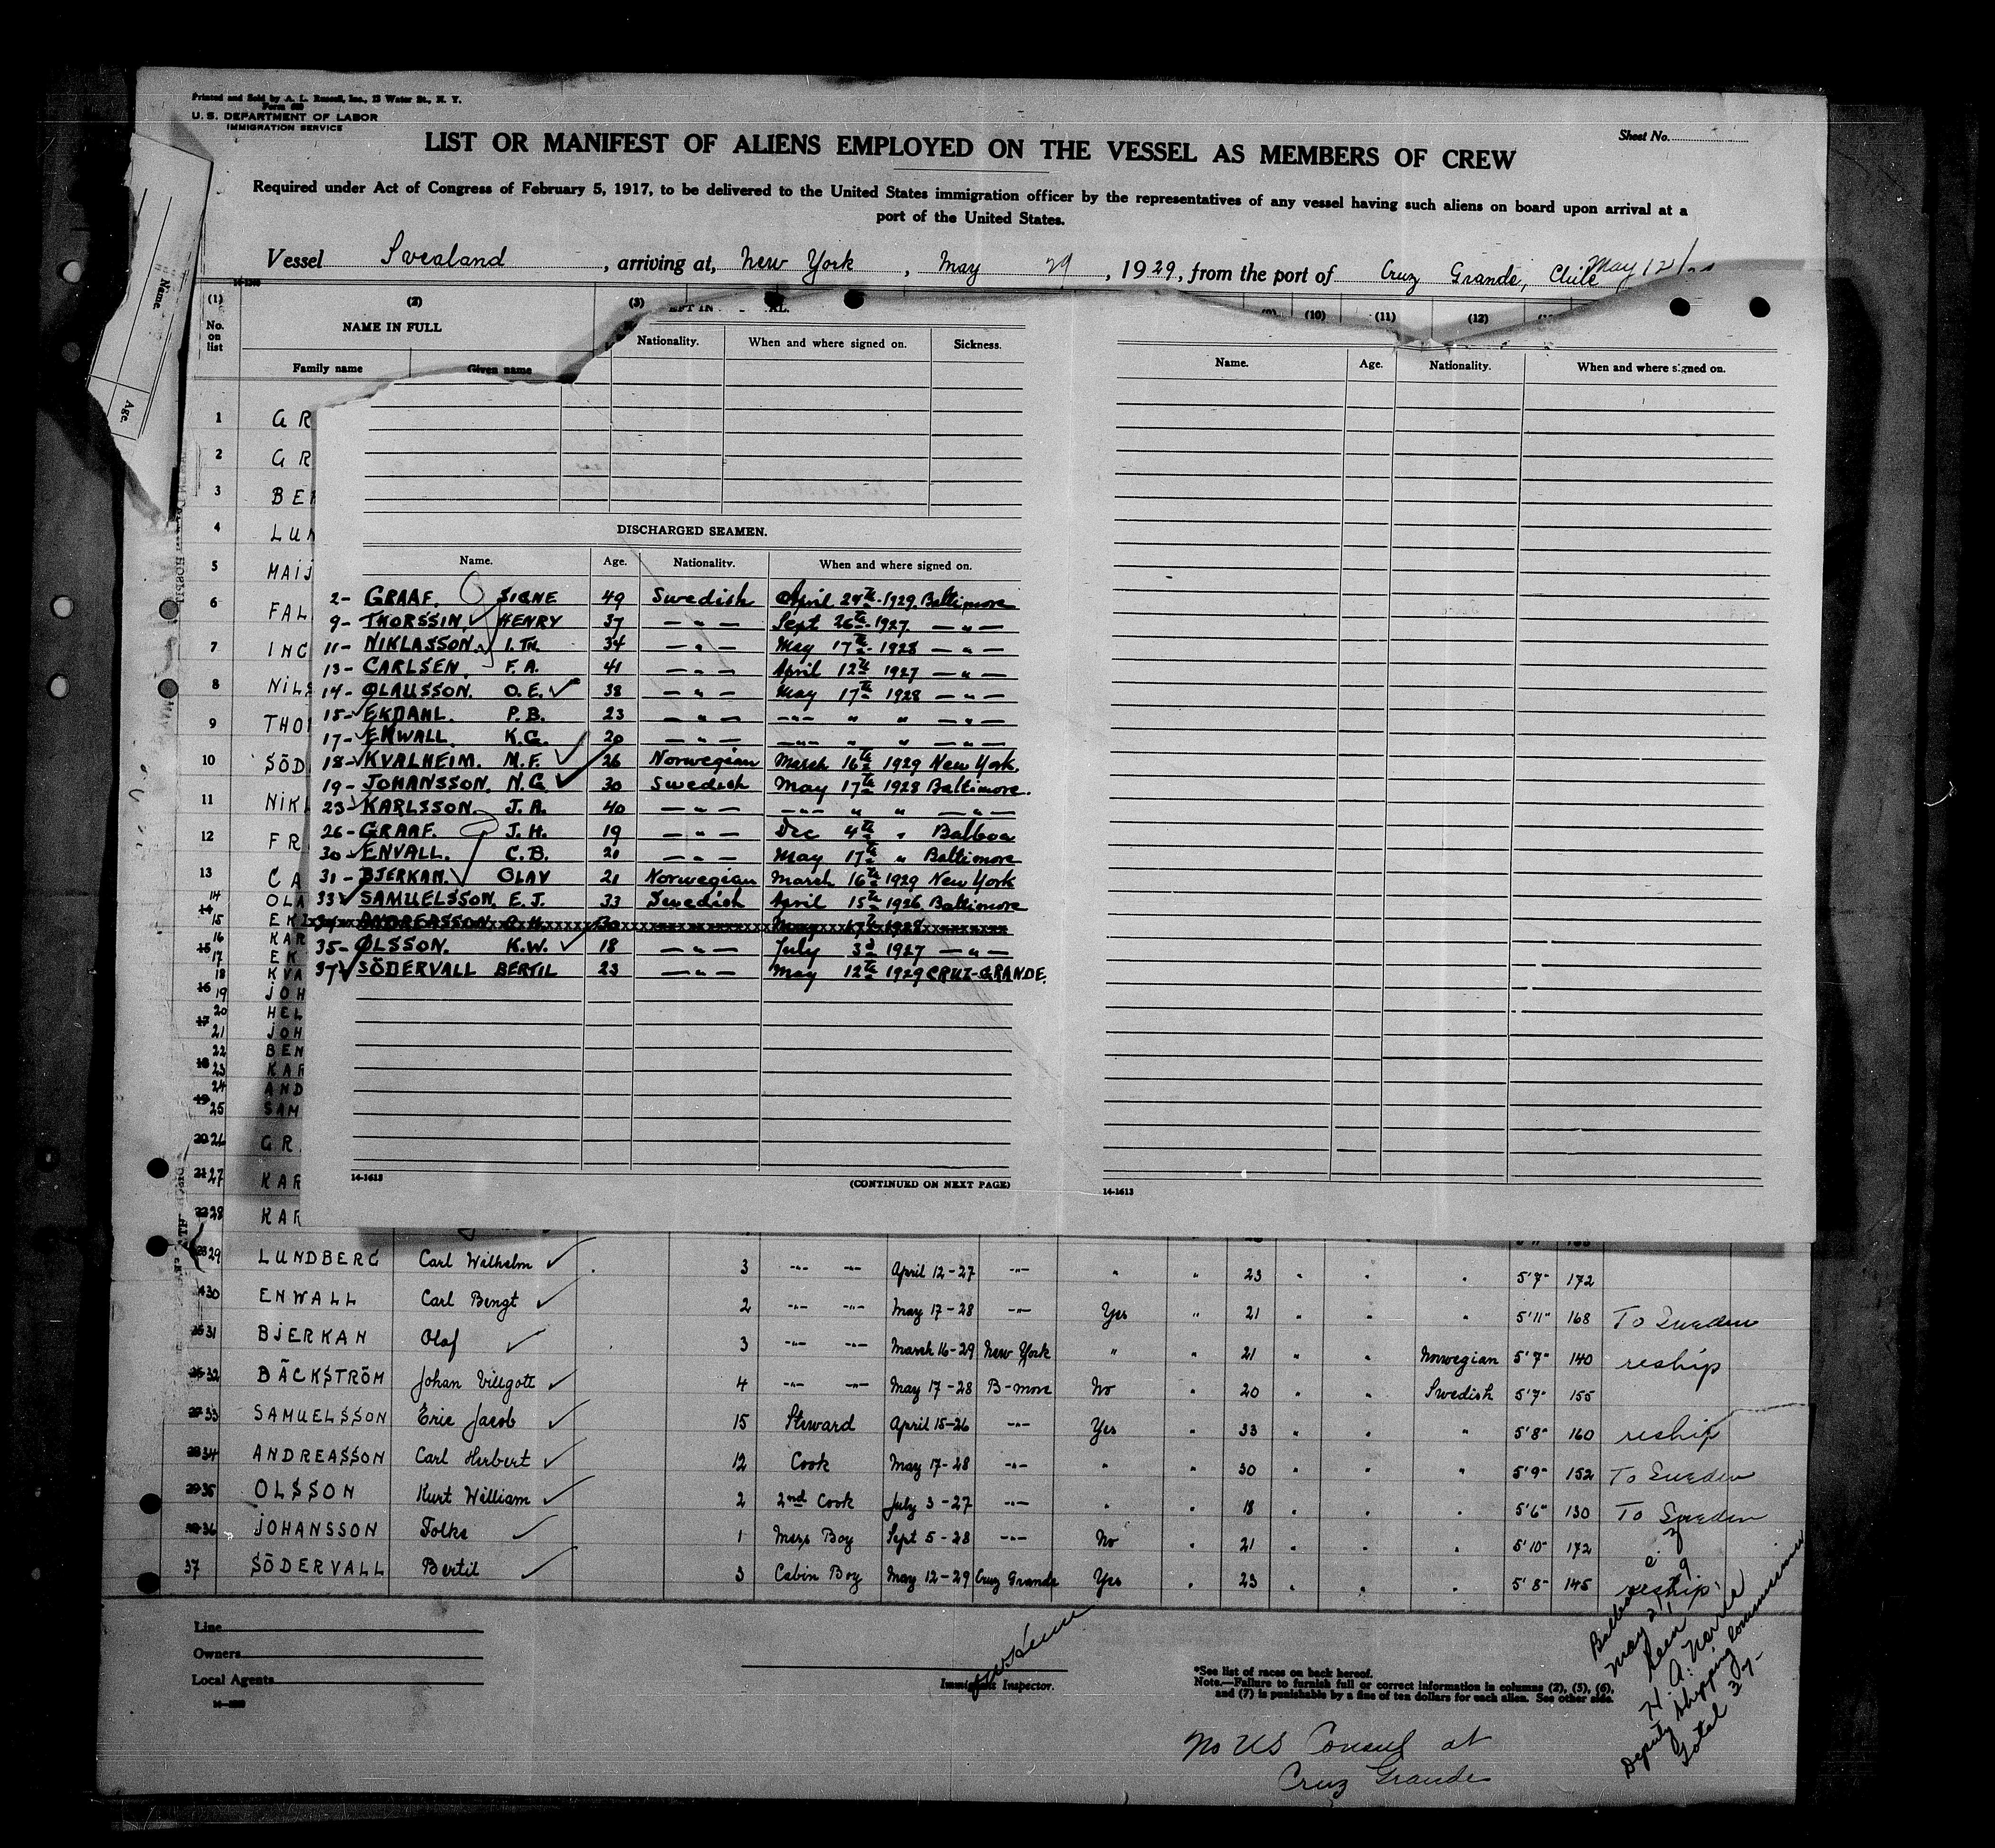 Printed and Sold by A. L. Russell, Inc., 13 Water St., N. Y.
Form 689
U. S. DEPARTMENT OF LABOR
IMMIGRATION SERVICE
Sheet No.
LIST OR MANIFEST OF ALIENS EMPLOYED ON THE VESSEL AS MEMBERS OF CREW
Required under Act of Congress of February 5, 1917, to be delivered to the United States immigration officer by the representatives of any vessel having such aliens on board upon arrival at a
port of the United States.
Vessel Svealand, arriving at, New York, May 29, 1929, from the port of Cruz Grande, Chile May 12
Name.
Age.
(1) (2) (3) (10) (11) (12)
No. on list
NAME IN FULL
Family name Given name
Nationality. When and where signed on. Sickness.
Name. Age. Nationality. When and where signed on.
1 GR
2 GR
3 BER
4 LUN
5 MAIJ
6 FAL
7 ING
8 NILS
9 THO
10 SÖD
11 NIK
12 FR
13 CA
14 OLA
15 EK
16 KAR
17 EK
18 KVA
19 JOH
20 HEL
21 JOH
22 BEN
23 KAR
24 AND
25 SAM
26 GR
27 KAR
28 KAR
DISCHARGED SEAMEN.
Name. Age. Nationality. When and where signed on.
2- GRAAF. SIGNE 49 Swedish April 24th 1929 Baltimore
9- THORSSIN. HENRY 37 — " — Sept 26th 1927 — " —
11- NIKLASSON. I. TH. 34 — " — May 17th 1928 — " —
13- CARLSEN. F. A. 41 — " — April 12th 1927 — " —
14- OLAUSSON. O. E. 38 — " — May 17th 1928 — " —
15- EKDAHL. P. B. 23 — " — — " — " " — " —
17- ENWALL. K. G. 20 — " — — " — " " — " —
18- KVALHEIM. M. F. 26 Norwegian March 16th 1929 New York.
19- JOHANSSON. N. G 30 Swedish May 17th 1928 Baltimore.
23- KARLSSON. J. A. 40 — " — — " — " " — " —
26- GRAAF. J. H. 19 — " — Dec 4th " Balboa
30- ENVALL. C. B. 21 — " — May 17th " Baltimore
31- BJERKAN. OLAV 21 Norwegian March 16th 1929 New York
33 SAMUELSSON. E. J. 33 Swedish April 15th 1926 Baltimore
34- ANDREASSON C. H. 30 May 17th 1928
35- OLSSON. K. W. 18 — " — July 3d 1927 — " —
37 SÖDERVALL BERTIL 23 — " — May 12th 1929 CRUZ-GRANDE.
14-1613 (CONTINUED ON NEXT PAGE)
14-1613
29 LUNDBERG Carl Wilhelm 3 -"- -"- April 12-27 -"- " " 23 " " " 5'7" 172
30 ENWALL Carl Bengt 2 -"- -"- May 17-28 -"- Yes " 21 " " " 5'11" 168 To Sweden
31 BJERKAN Olof 3 -"- -"- March 16-29 New York " " 21 " " Norwegian 5'7" 140 reship
32 BÄCKSTRÖM Johan Villgott 4 -"- -"- May 17-28 B-more No " 20 " " Swedish 5'7" 155
33 SAMUELSSON Eric Jacob 15 Steward April 15-26 -"- Yes " 33 " " " 5'8" 160 reship
34 ANDREASSON Carl Herbert 12 Cook May 17-28 -"- " " 30 " " " 5'9" 152 To Sweden
35 OLSSON Kurt William 2 2nd Cook July 3-27 -"- " " 18 " " " 5'6" 130 To Sweden
36 JOHANSSON Folke 1 Mess Boy Sept 5-28 -"- No " 21 " " " 5'10" 172
37 SÖDERVALL Bertil 3 Cabin Boy May 12-29 Cruz Grande Yes " 23 " " " 5'8" 145 reship
Line
Owners
Local Agents
Immigrant Inspector.
*See list of races on back hereof.
Note.—Failure to furnish full or correct information in columns (2), (5), (6),
and (7) is punishable by a fine of ten dollars for each alien. See other side.
Balboa
May 21
Seen
Deputy Shipping Commissioner
Total 37-
No US Consul at
Cruz Grande